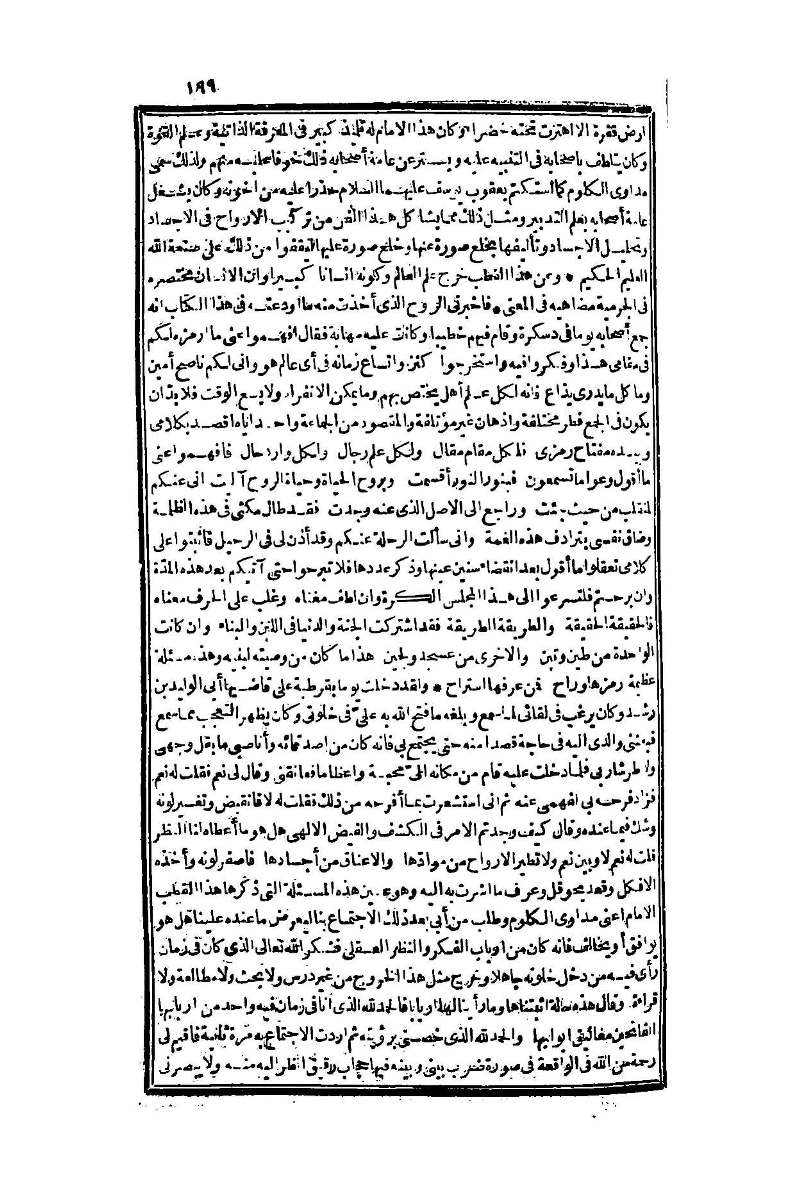 ١٨٩
ارض قفرة الا اهتزت تحته خضراء وكان هذا الامام له تلميذ كبير فى المعرفة الذاتية وعلم القوة
وكان يتلطف باصحابه فى التنبيه عليه ويستر عن عامة أصحابه ذلك خوفا عليه منهم ولذلك سمى
مداوى الكلوم كما استكتم يعقوب يوسف عليهما السلام حذرا عليه من اخوته وكان يشغل
عامة أصحابه بعلم التدبير ومثل ذلك مما يشا كل هذا الفن من تركيب الارواح فى الاجساد
وتحليل الاجساد وتأليفها بخلع صورة عنها وخلع صورة عليها ليقفوا من ذلك على صنعة الله
العليم الحكيم * وعن هذا القطب خرج علم العالم وكونه انسانا كبيرا وان الانسان مختصره
فى الجرمية مضاهيه فى المعنى * فاخبرنى الروح الذى أخذت منه ما اودعته فى هذا الكتاب انه
جمع أصحابه يوما فى دسكرة وقام فيهم خطيبا وكانت عليه مهابة فقال افهموا عنى ما أرمزه لكم
فى مقامى هذا وفكروا فيه واستخرجوا كنزه واتساع زمانه فى أى عالم هو وانى لكم ناصح أمين
وما كل ما يدرى يذاع فانه لكل علم أهل يختص بهم وما يمكن الانفراد ولا يسع الوقت فلا بد ان
يكون فى الجمع فطر مختلفة واذهان غير مؤتلفة والمقصود من الجماعة واحد اياه اقصد بكلامى
وبيده مفتاح رمزى فلكل مقام مقال ولكل علم رجال ولكل وارد حال فافهموا عنى
ما أقول وعوا ما تسمعون فبنور النور أقسمت وبروح الحياة وحياة الروح آليت انى عنكم
لمنقلب من حيث جئت وراجع الى الاصل الذى عنه وجدت فقد طال مكثى فى هذه الظلمة
وضاق نفسى بترادف هذه الغمة وانى سألت الرحلة عنكم وقد أذن لى فى الرحيل فاثبتوا على
كلامى تعقلوا ما أقول بعد انقضاء سنين عينها وذكر عددها فلا تبرحوا حتى آتيكم بعد هذه المدة
وان برحتم فلتسرعوا الى هذا المجلس الكرة وان لطف مغناه وغلب على الحرف معناه
فالحقيقة الحقيقة والطريقة الطريقة فقد اشتركت الجنة والدنيا فى اللبن والبناء وان كانت
الواحدة من طين وتبن والاخرى من عسجد ولجين هذا ما كان من وصيته لبنيه وهذه مسئلة
عظيمة رمزها وراح فمن عرفها استراح * ولقد دخلت يوما بقرطبة على قاضيها أبى الوليد بن
رشد وكان يرغب فى لقائى لما سمع وبلغه ما فتح الله به علىّ فى خلوتى وكان يظهر التعجب مما سمع
فبعثنى والدى اليه فى حاجة قصدا منه حتى يجتمع بى فانه كان من اصدقائه وأنا صبى ما بقل وجهى
ولا طر شاربى فلما دخلت عليه قام من مكانه الىّ محبة واعظاما فعانقنى وقال لى نعم فقلت له نعم
فزاد فرحه بى لفهمى عنه ثم انى استشعرت بما أفرحه من ذلك فقلت له لا فانقبض وتغير لونه
وشك فيما عنده وقال كيف وجدتم الامر فى الكشف والفيض الالهى هل هو ما أعطاه لنا النظر
قلت له نعم لا وبين نعم ولا تطير الارواح من موادها والاعناق من أجسادها فاصفر لونه وأخذه
الافكل وقعد يحوقل وعرف ما اشرت به اليه وهو عين هذه المسئلة التى ذكرها هذا القطب
الامام اعنى مداوى الكلوم وطلب من أبى بعد ذلك الاجتماع بنا ليعرض ما عنده علينا هل هو
يوافق أو يخالف فانه كان من ارباب الفكر والنظر العقلى فشكر الله تعالى الذى كان فى زمان
رأى فيه من دخل خلوته جاهلا وخرج مثل هذا الخروج من غير درس ولا بحث ولا مطالعة ولا
قراءة وقال هذه حالة اثبتناها وما رأينا لها اربابا فالحمد لله الذى أنا فى زمان فيه واحد من اربابها
الفاتحين مغاليق ابوابها والحمد لله الذى خصنى برؤيته ثم اردت الاجتماع به مرة ثانية فاقيم لى
رحمه الله فى الواقعة فى صورة ضرب بينى وبينه فيها حجاب رقيق انظر اليه منه ولا يبصرنى